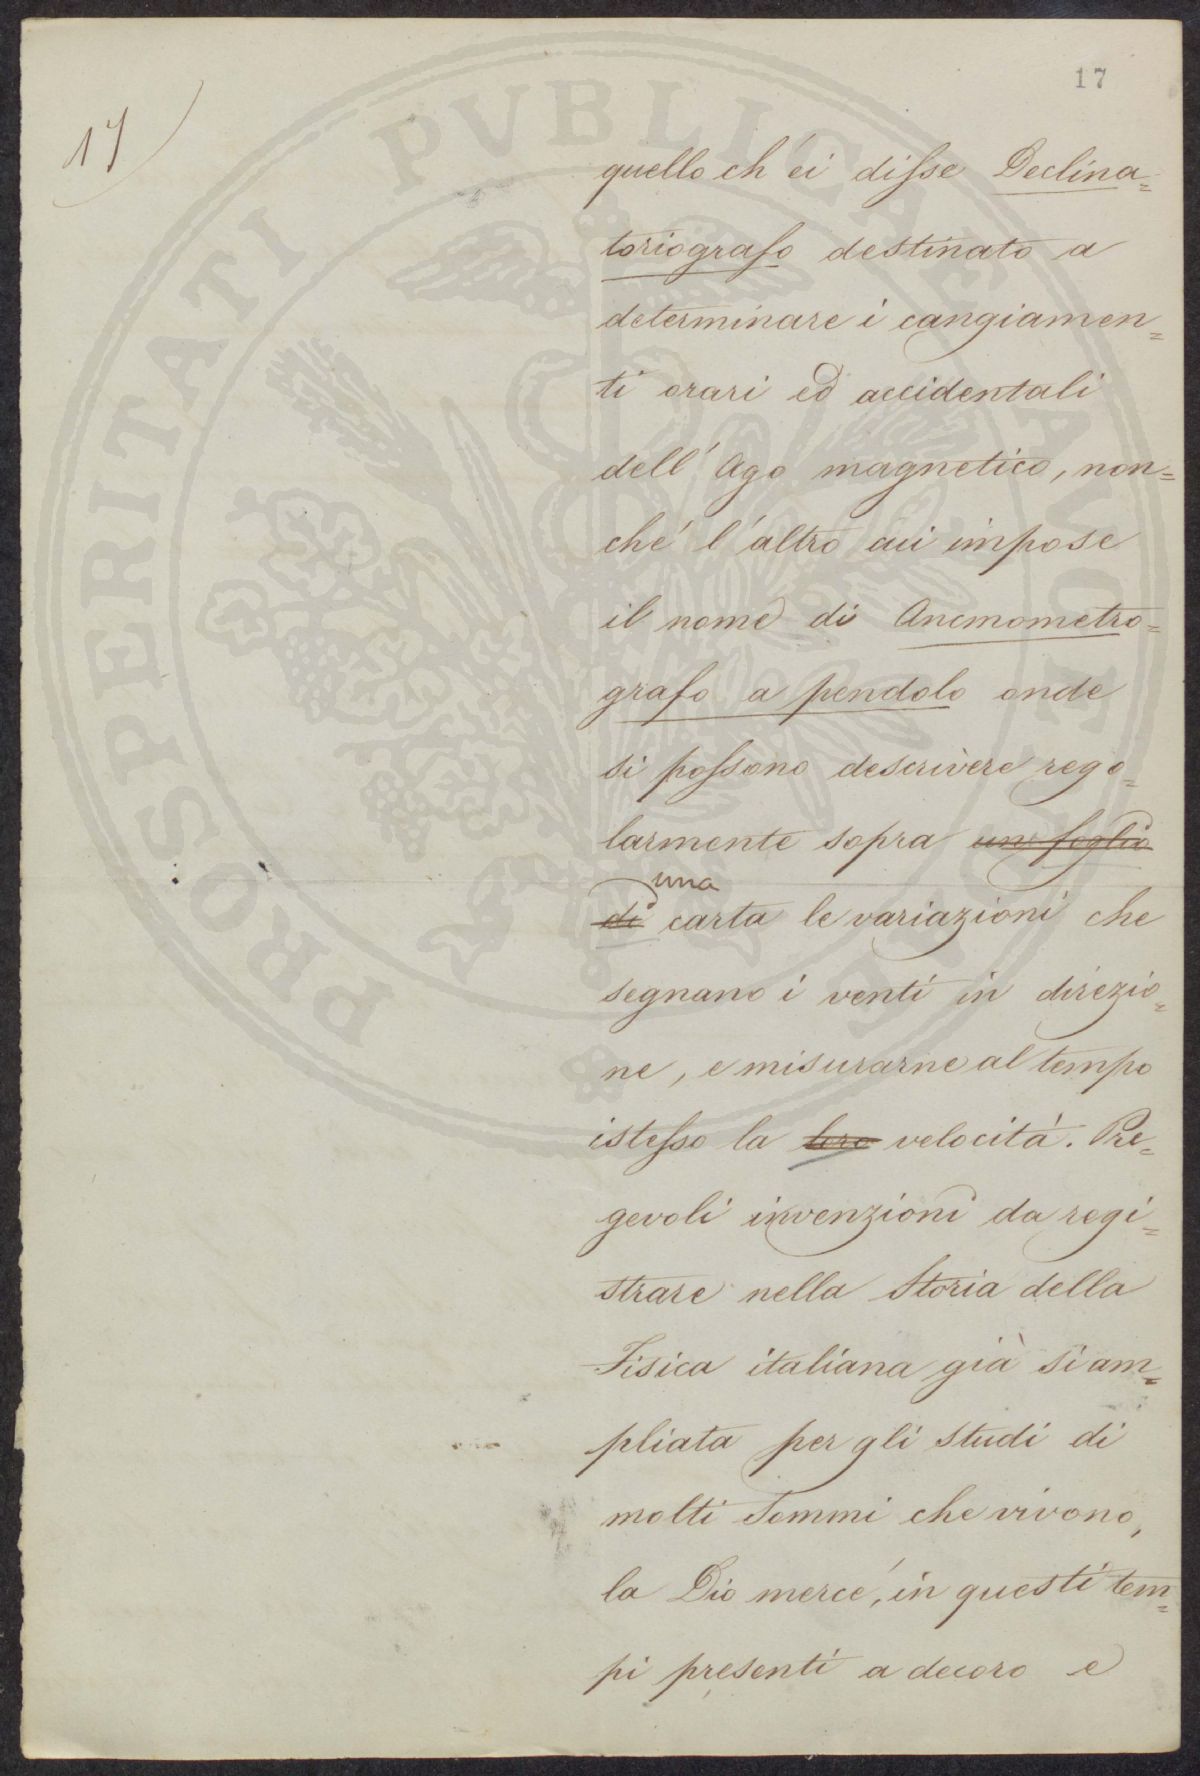 17
17
quello ch'ei disse Declina=
toriografo destinato a
determinare i cangiamen=
ti orari ed accidentali
dell'Ago magnetico, non=
ché l'altro cui impose
il nome di Anemometro=
grafo a pendolo onde
si possono descrivere rego=
larmente sopra un foglio
una
di carta le variazioni che
segnano i venti in direzio=
ne, e misurarne al tempo
istesso la loro velocità. Pre=
gevoli invenzioni da regi=
strare nella Storia della
Fisica italiana già sì am=
pliata per gli studi di
molti Sommi che vivono,
la Dio mercé, in questi tem=
pi presenti a decoro e
PROSPERITATI PVBLICAE AVGENDAE